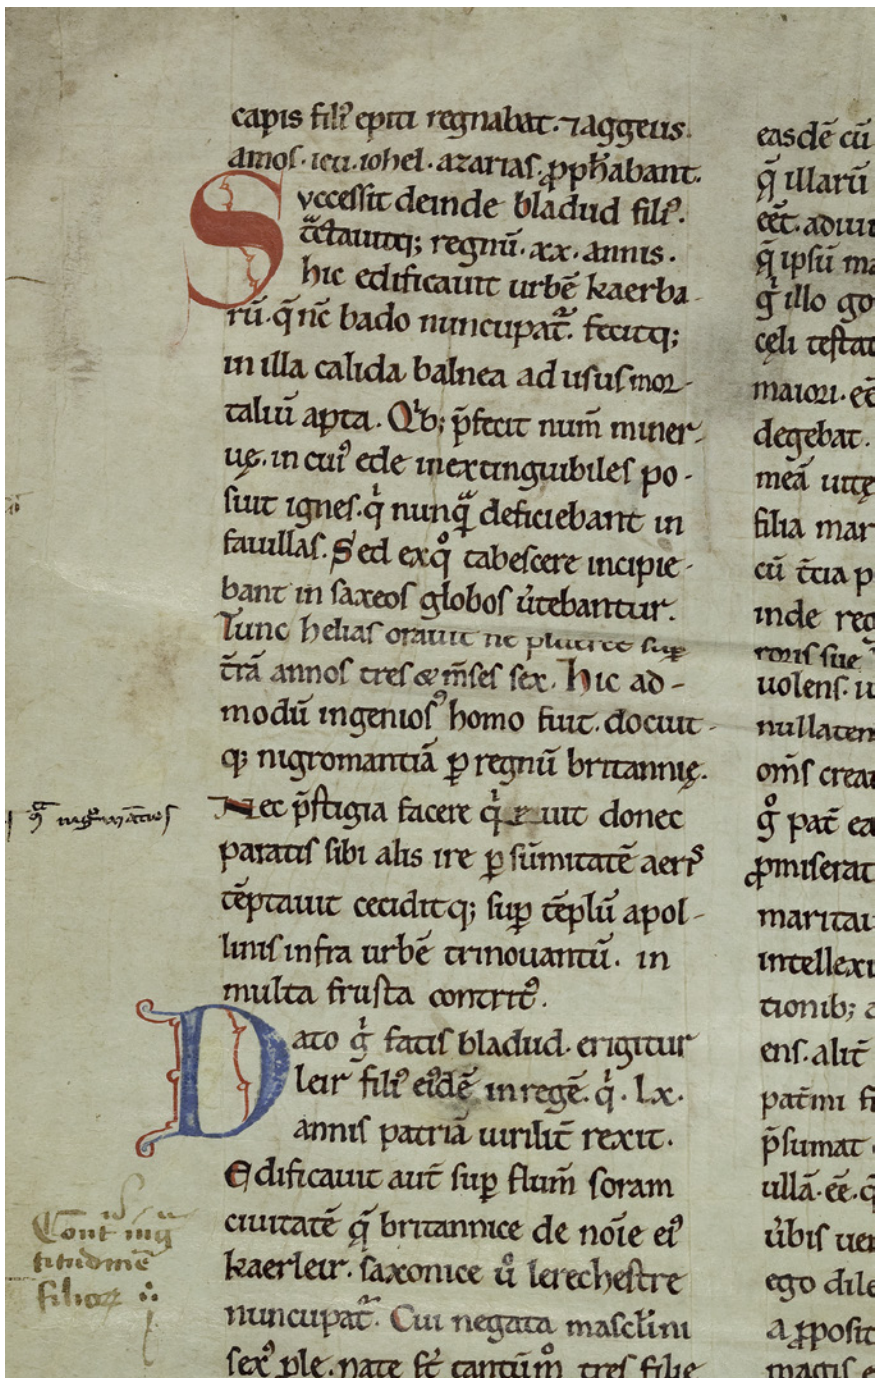 capis fili⁹ epiti regnabat. ⁊ aggeus.
amos. ieu. iohel. azarias. ꝓph̄abant.
Vccessit deinde bladud fili⁹.
tͣctauitq; regnū. xx. annis.
hic edificauit urbē kaerba
rū. q̄ nc̄ bado nuncupatͣ. fecitq;
in illa calida balnea ad usus mor-
taliū apta. Qͥb; p̄fecit num̄ miner-
uę. in cui⁹ ede inextinguibiles po-
suit ignes. qͥ nunqͣ deficiebant in
fauillas. Sed exqͦ tabescere incipie-
bant in saxeos globos u̓tebantur.
Tunc helias orauit ne plueret suꝑ
t̄rā annos tres & m̄ses sex. Hic ad-
modū ingenios⁹ homo fuit. docuit-
q; nigromantiā ꝑ regnū britannię.
Nec p̄stigia facere qͥeuit donec
paratis sibi alis ire ꝑ sūmitatē aer⁹
tēptauit ceciditq; suꝑ tēplū apol-
linis infra urbē trinouantū. in
multa frusta contrit⁹.
Dato gͥ fatis bladud. erigitur
leir fili⁹ ei⁹dē in regē. qͥ. lx.
annis patriā uirilit̄ rexit.
Edificauit aut̄ suꝑ flum̄ soram
ciuitatē q̄ britannice de noīe ei⁹
kaerleir. saxonice uͦ lerechestre
nuncupatͣ. Cui negata masclini
sex⁹ ꝓle. nate st̄ tantūmͦ tres filie
titudinē
filiaꝝ
easdē cū
q̄ illarū
eēt. adiui
q̄ ipsū ma
gͥ illo go
cęli testat
maiori. eē
degebat.
meā uitę
filia mar
cū t̄cia p
inde reg
roris sue
uolens. u
nullaten
om̄s crea
gͦ pat̄ ea
ꝓmiserat
maritau
intellexi
tionib; a
ens. alit̄
pat̄ni fi
p̄sumat
ullā. eē. q
u̓bis uer
ego dile
a ꝓposit
magis e